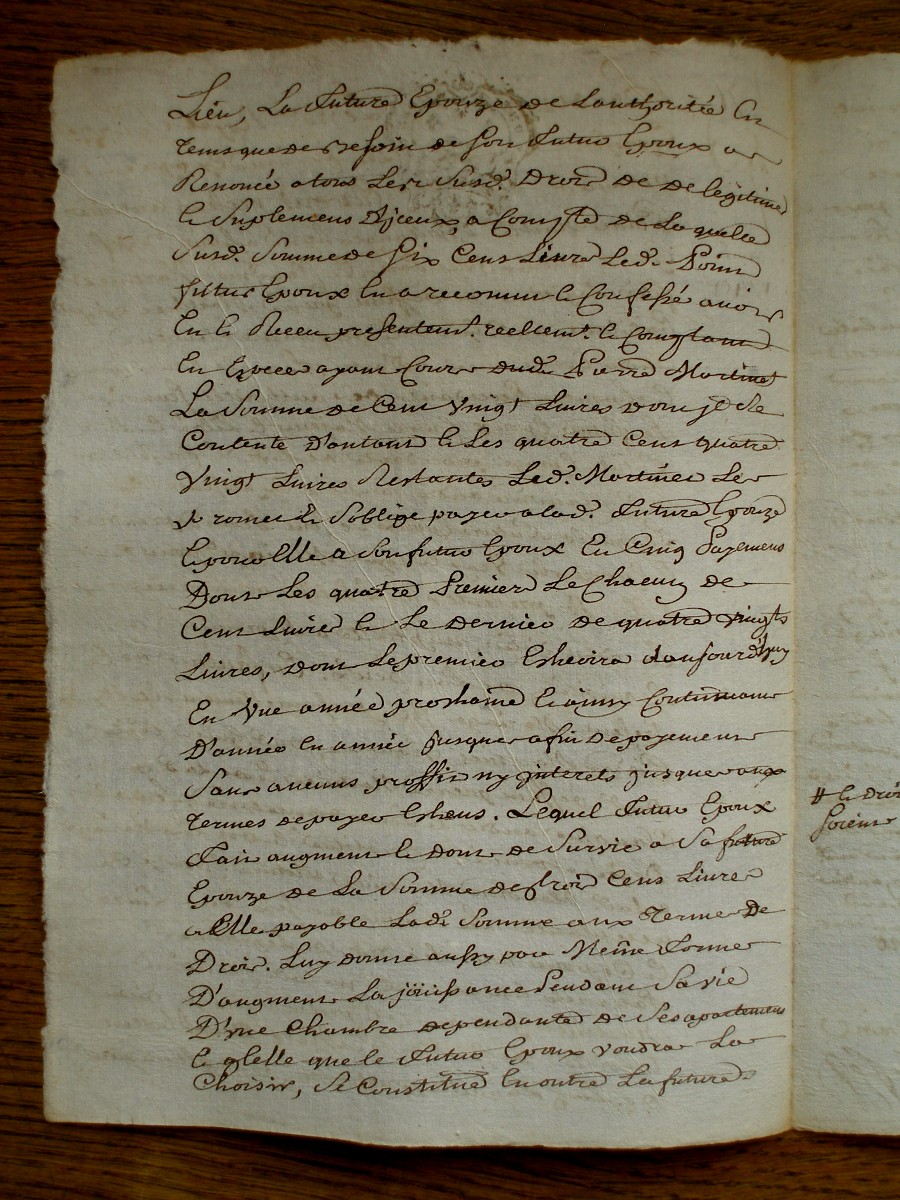 Lieu, La future Epouze de Lauthoritée En
tems que de besoin de son futur Epoux a
Renoncé a tous Les Susd. Droits de de legitime
& Suplement d'jceux, a Compte de La quelle
Susd. Somme de Six Cens Livres Led.
futur Epoux En a reconnu & Confessé avoir
Eu & Receu presentem.t reellem.t & Comptant
En Espece ayant Cours dud. Pierre Martinet
La Somme de Cent vingt Livres dont jl Se
Contente D'autant & Les quatre Cens quatre
vingt Livres Restantes Led. Martinet Les
promet & Soblige payer a lad. future Epouze
& pour Elle a Son futur Epoux En Cinq Payemens
Dont Les quatre Premiers Se Chacun de
Cent Livres & Le dernier de quatre vingts
Livres, dont Le premier Eshevira daujourd'huy
En Vne année prochaine & ainsy Continuant
D'année En année jusques a fin de payement
Sans aucuns proffit ny interets jusques aux
termes de payer Esheus. Lequel futur Epoux
fait augment & dont de Survie a Sa future
Epouze de La Somme de trois Cens Livres
a Elle payable Lad. Somme aux Terme De
Droit. Luy donne aussy par Meme forme
D'augment La joüissance Pendant Sa vie
D'vne Chambre dependante de Ses apartemens
& t'elle que le futur Epoux voudra La
Choisir, Se Constitue En outre La future
# & droi
Soient